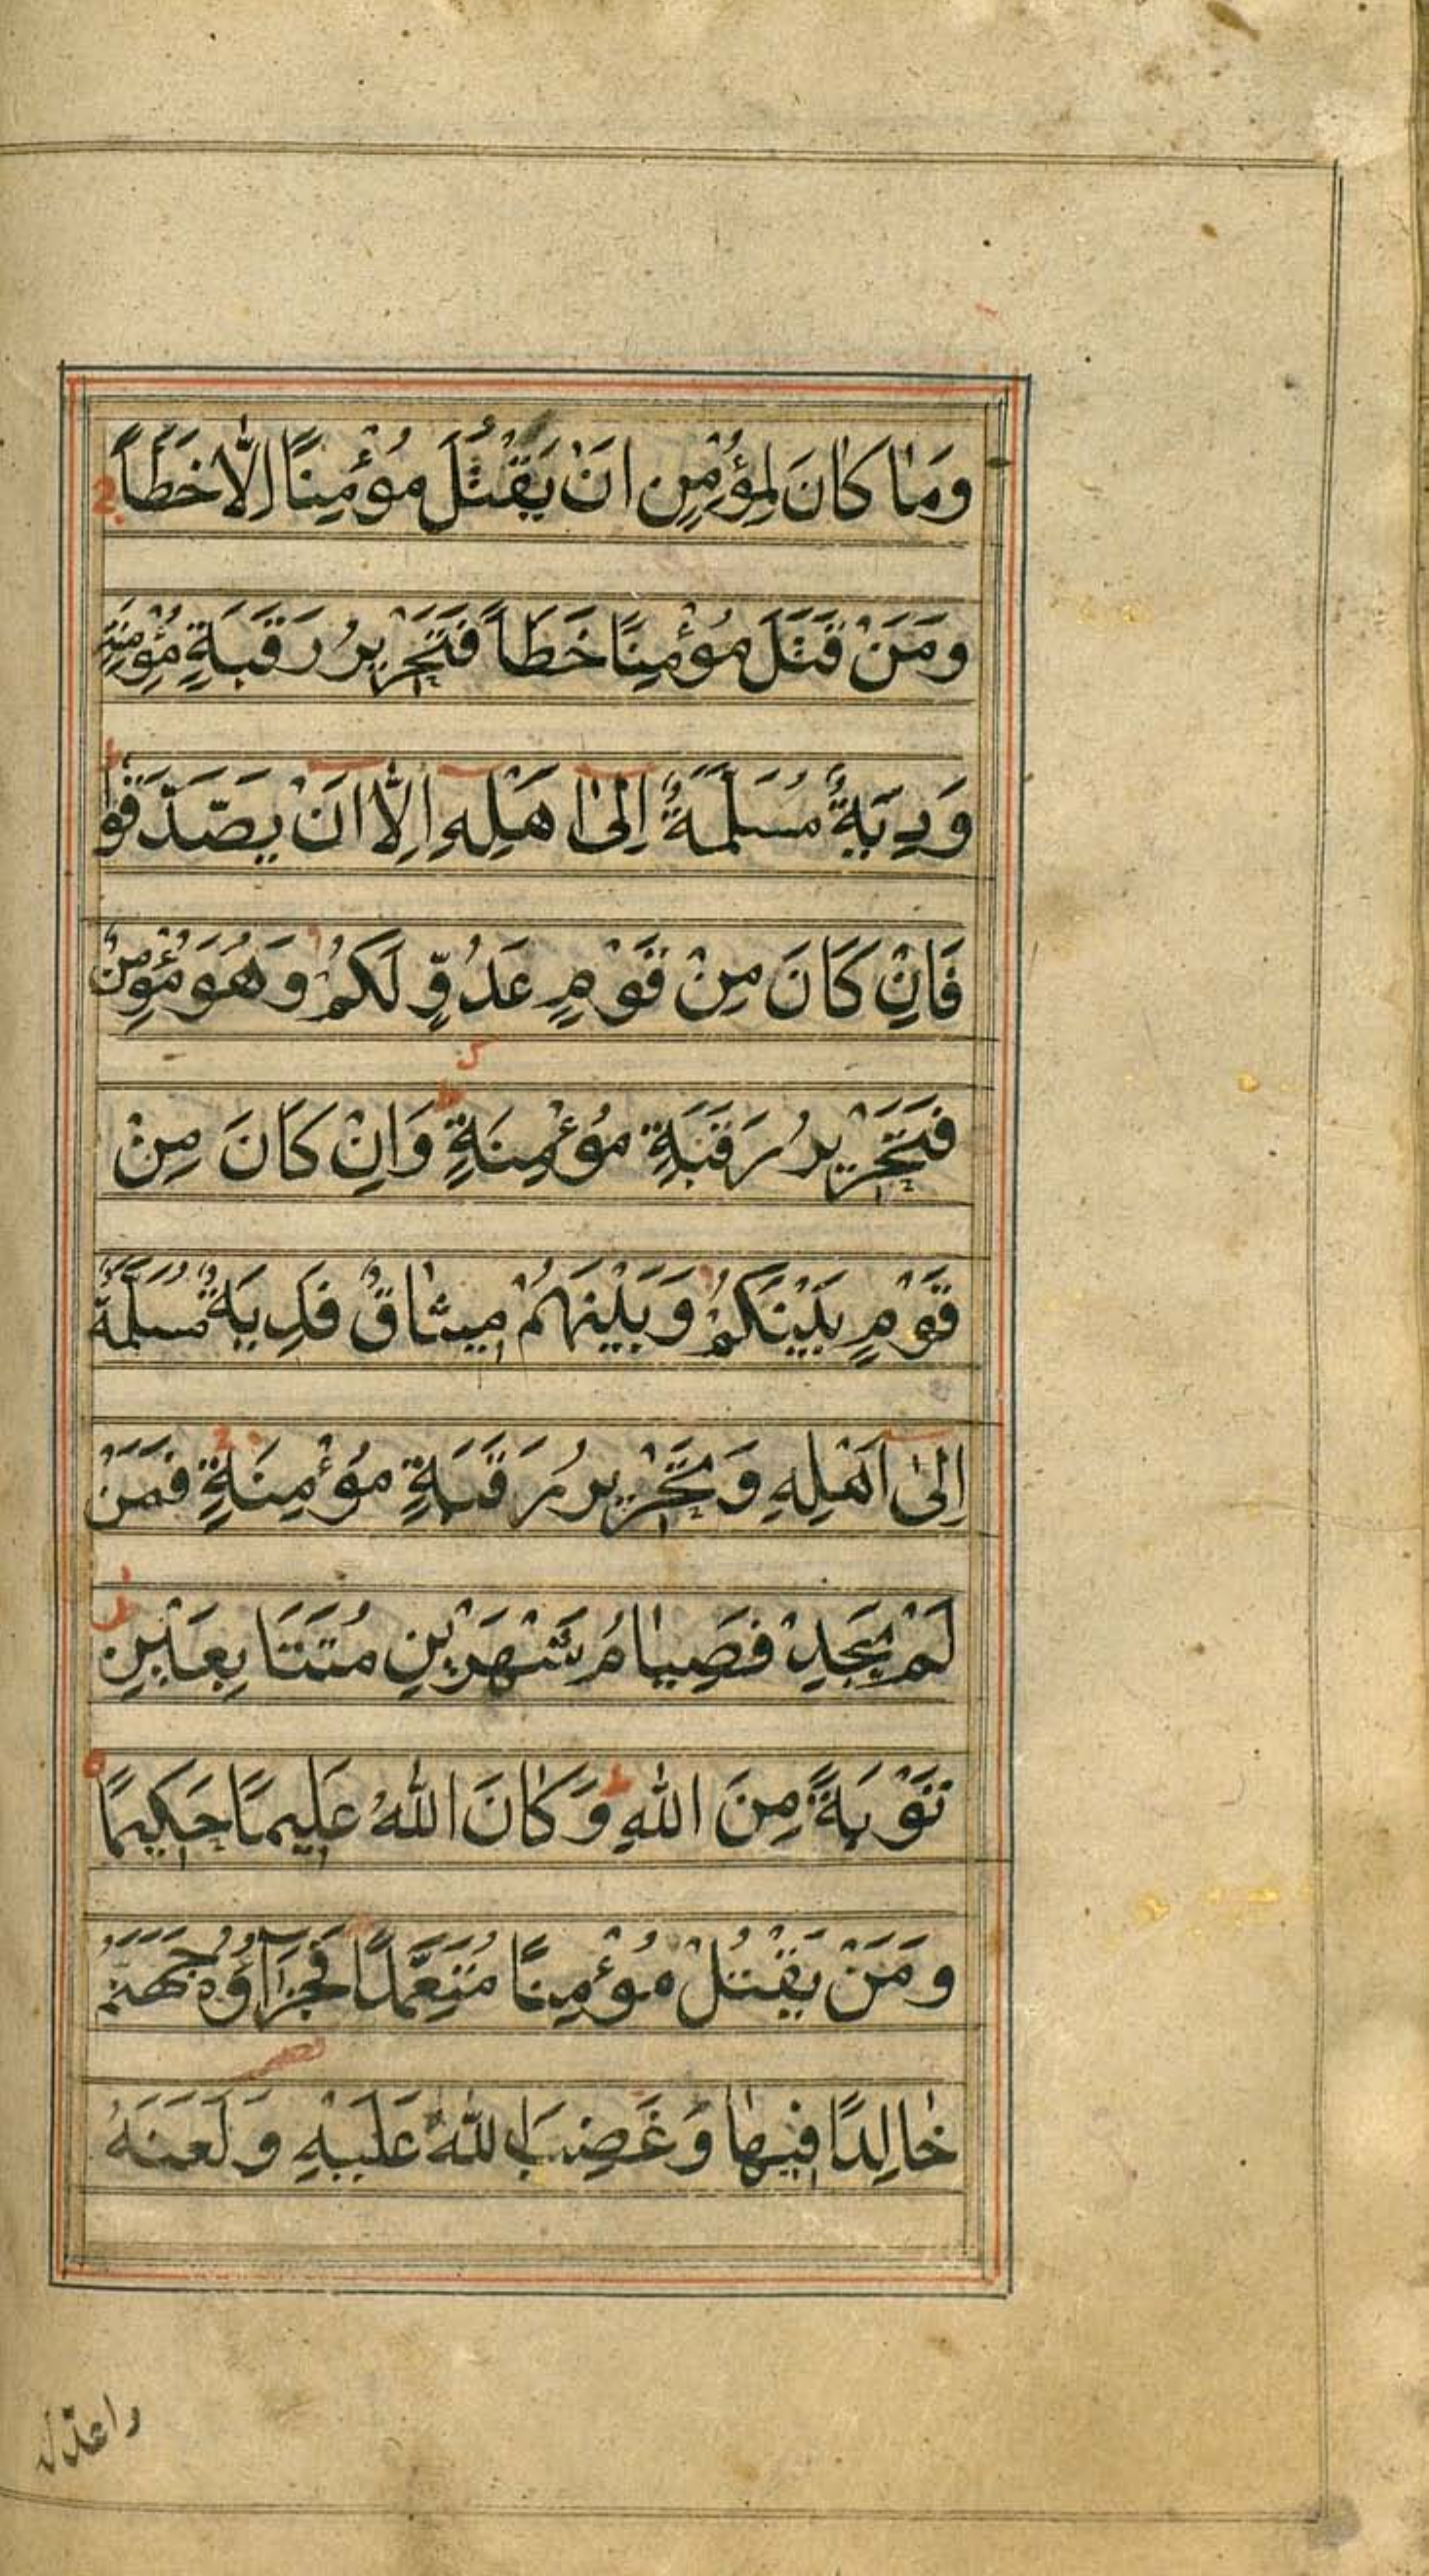 وَمٰا كٰانَ لِمُؤْمِنٍ اَنْ يَقْتُلَ مُؤْمِنًا اِلّٰا خَطَأً
وَمَنْ قَتَلَ مُؤْمِنًا خَطَأً فَتَحْرِيرُ رَقَبَةٍ مُؤْمِنَةٍ
وَدِيَةٌ مُسَلَّمَةٌ اِلىٰ اَهْلِهِ اِلّٰا اَنْ يَصَّدَّقُوا
فَاِنْ كَانَ مِنْ قَوْمٍ عَدُوٍّ لَكُمْ وَهُوَ مُؤْمِنٌ
فَتَحْرِيرُ رَقَبَةٍ مُؤْمِنَةٍ وَاِنْ كَانَ مِنْ
قَوْمٍ بَيْنَكُمْ وَبَيْنَهُمْ مِيثٰاقٌ فَدِيَةٌ مُسَلَّمَةٌ
اِلىٰ اَهْلِهِ وَتَحْرِيرُ رَقَبَةٍ مُؤْمِنَةٍ فَمَنْ
لَمْ يَجِدْ فَصِيٰامُ شَهْرَيْنِ مُتَتَابِعَيْنِ
تَوْبَةً مِنَ اللّٰهِ وَكٰانَ اللّٰهُ عَلِيمًا حَكِيمًا
وَمَنْ يَقْتُلْ مُؤْمِنًا مُتَعَمِّدًا فَجَزَآؤُهُ جَهَنَّمُ
خٰالِدًا فِيهٰا وَغَضِبَ اللّٰهُ عَلَيْهِ وَلَعَنَهُ
واعدّ له